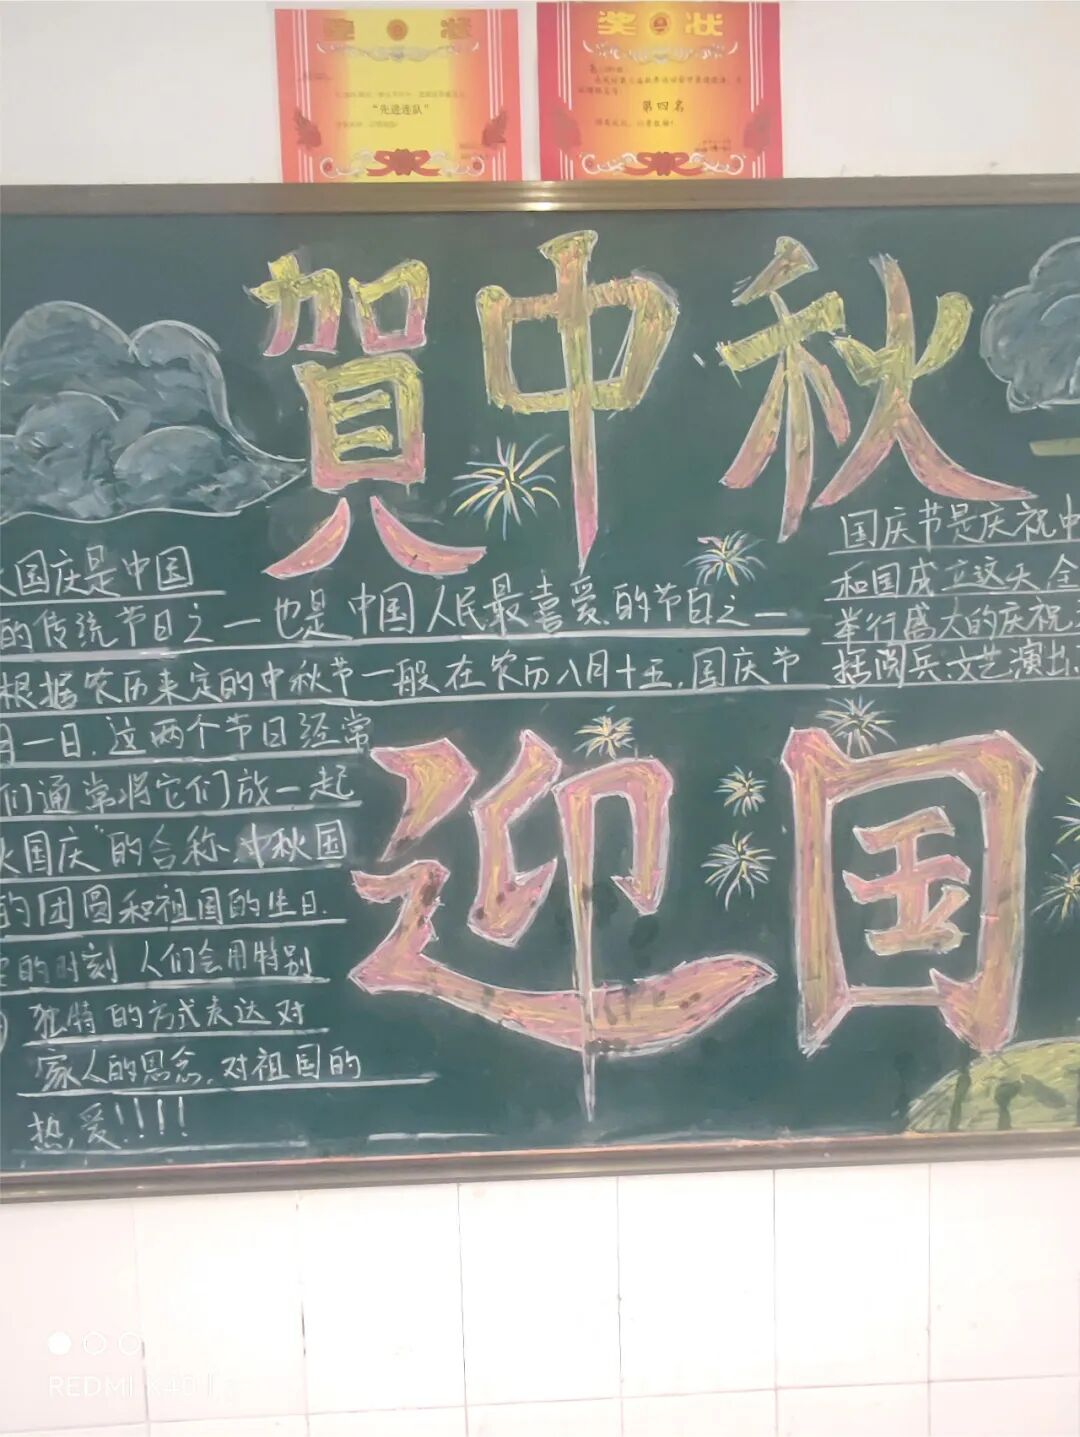 奖状
奖状
"先进连队"
第四名
賀中秋
国庆是中国
的传统节日之一也是中国人民最喜爱的节日之一
根据农历来定的中秋节一般在农历八月十五.国庆节
月一日.这两个节日经常
们通常将它们放一起
秋国庆"的合称.中秋国
的团圆和祖国的生日.
的时刻人们会用特别
独特的方式表达对
家人的思念.对祖国的
热爱!!!!
国庆节是庆祝中
和国成立这天全
举行盛大的庆祝
括阅兵.文艺演出
迎国
REDMI K40